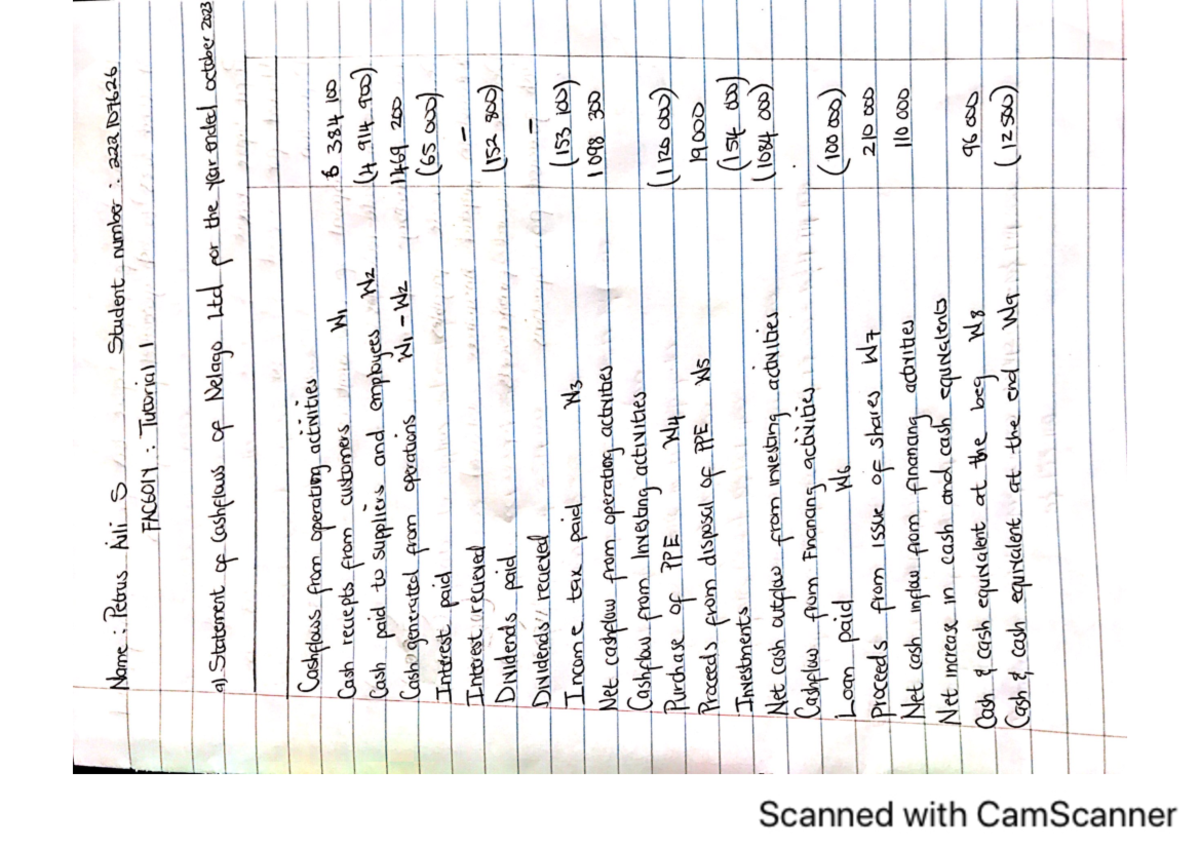 Name : Petrus Aili S Student number : 222107626
FAC601Y : Tutorial 1
a) Statement of Cashflows of Nelago Ltd for the year ended october 2023
Cashflows from operating activities
Cash reciepts from customers W1 6 384 100
Cash paid to suppliers and employees W2 (4 914 900)
Cash generated from operations W1 - W2 1 469 200
Interest paid (65 000)
Interest recieved -
Dividends paid (152 800)
Dividends recieved -
Income tax paid W3 (153 100)
Net cashflow from operating activities 1 098 300
Cashflow from Investing activities
Purchase of PPE W4 (1 120 000)
Proceeds from disposal of PPE W5 19 000
Investments (154 000)
Net cash outflow from investing activities (1 084 000)
Cashflow from Financing activities
Loan paid W6 (100 000)
Proceeds from issue of shares W7 210 000
Net cash inflow from financing activities 110 000
Net increase in cash and cash equivalents
Cash & cash equivalent at the beg W8 96 000
Cash & cash equivalent at the end W9 (12 500)
Scanned with CamScanner